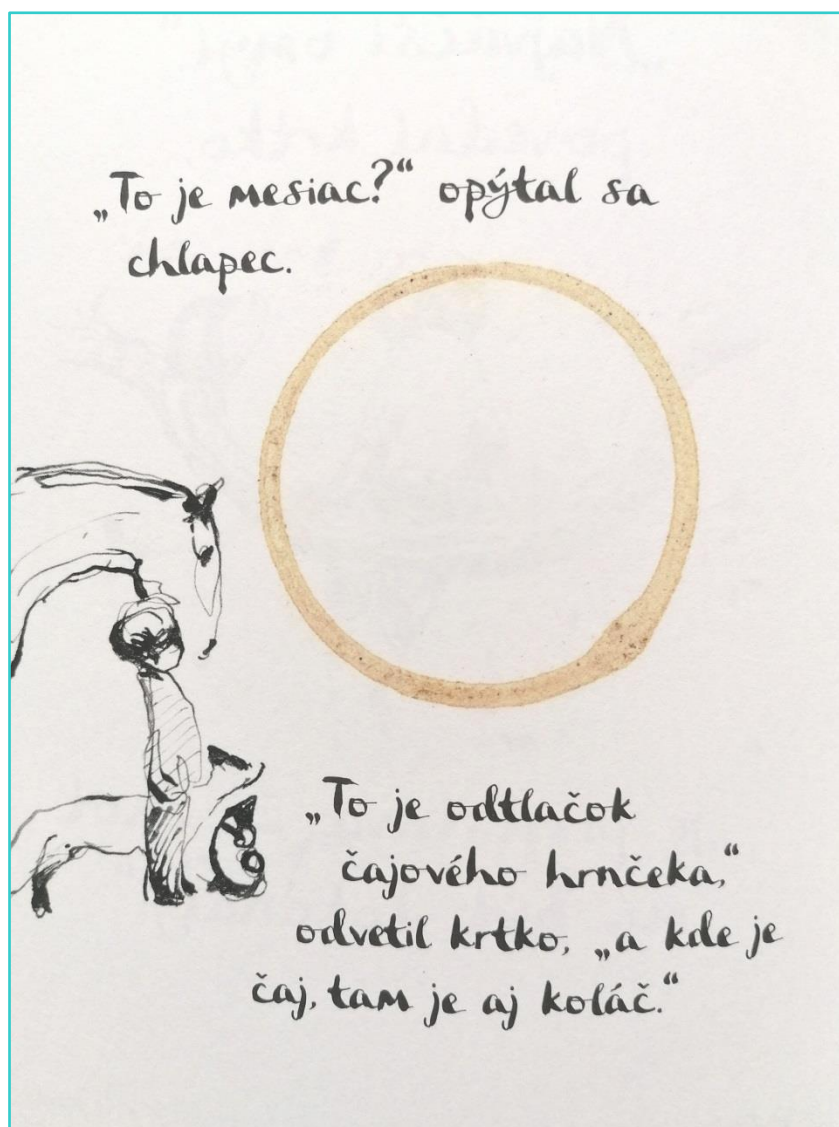 „To je mesiac?“ opýtal sa
chlapec.
„To je odtlačok
čajového hrnčeka,“
odvetil krtko, „a kde je
čaj, tam je aj koláč.“